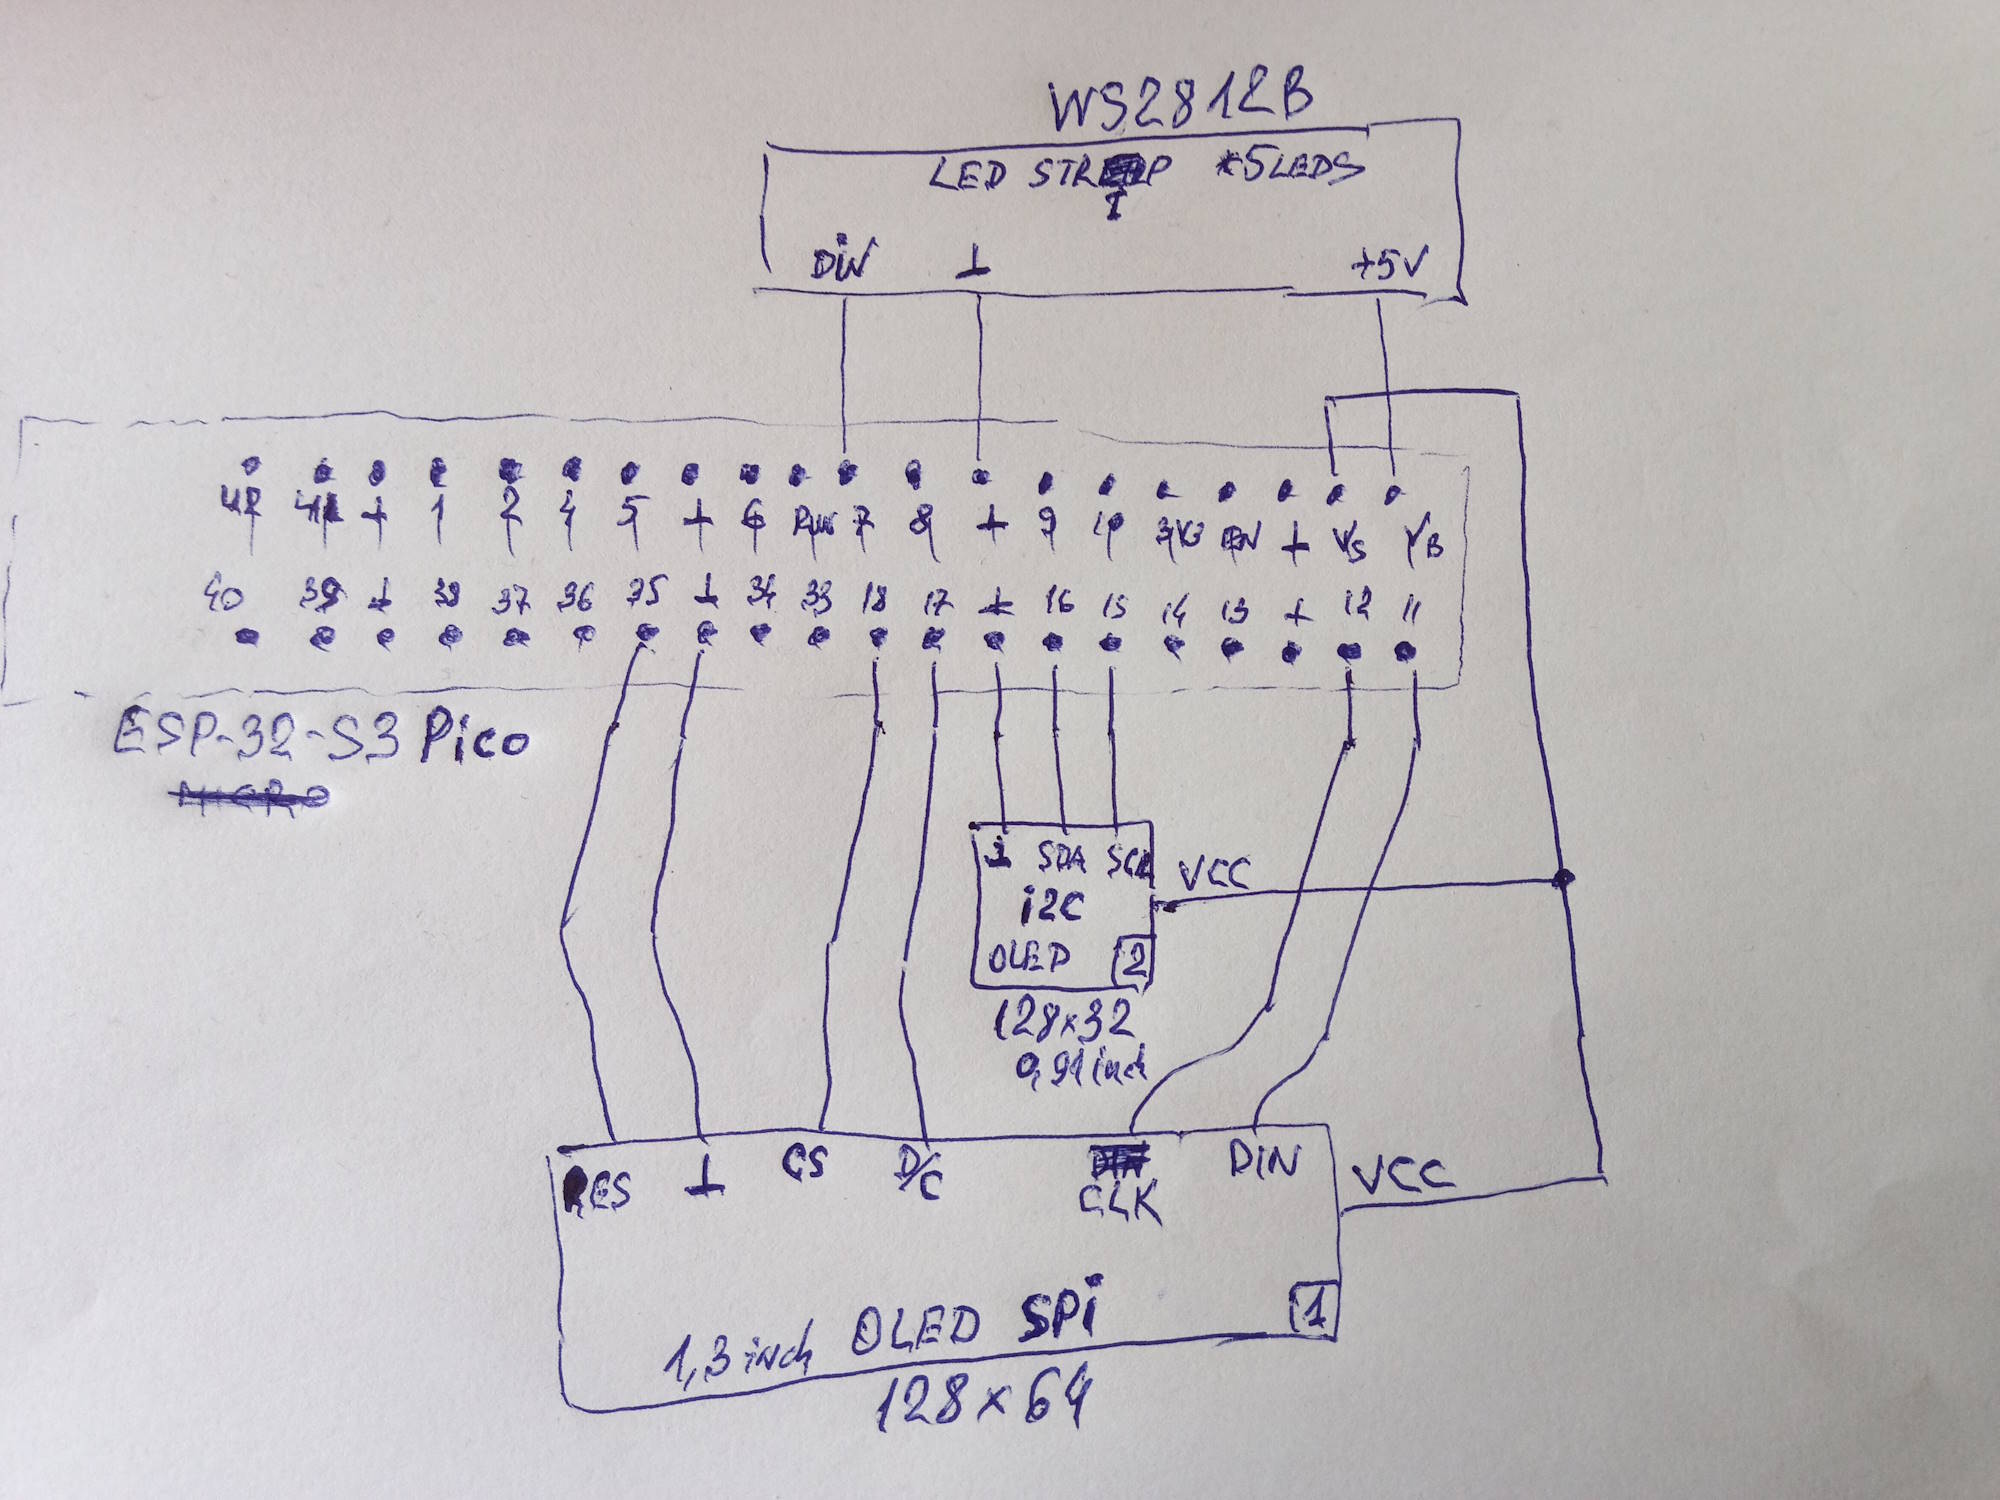 WS2812B
LED STRIP *5LEDS
DiN ⊥ +5V
42 41 ⊥ 1 2 4 5 ⊥ 6 RUN 7 8 ⊥ 9 10 3V3 EN ⊥ VS VB
40 39 ⊥ 38 37 36 35 ⊥ 34 33 18 17 ⊥ 16 15 14 13 ⊥ 12 11
ESP-32-S3 Pico
⊥ SDA SCL VCC
i2C
OLED 2
128x32
0,91 inch
RES ⊥ CS D/C CLK DIN VCC
1,3 inch OLED SPi 1
128x64